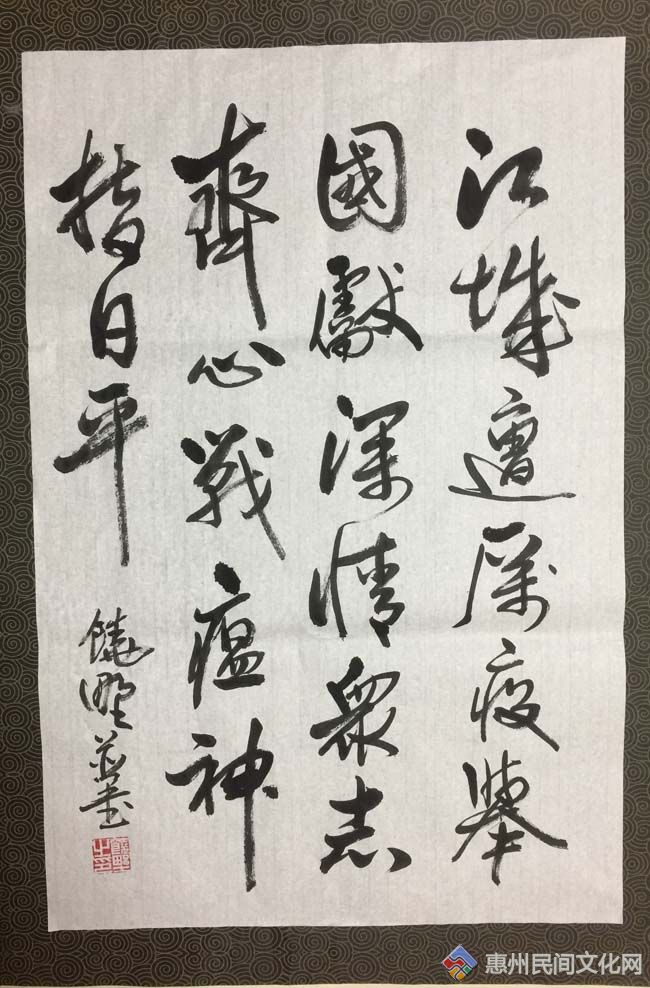 江城遭厲疫舉
國獻深情眾志
齊心戰瘟神
指日平
饒野並書
惠州民间文化网